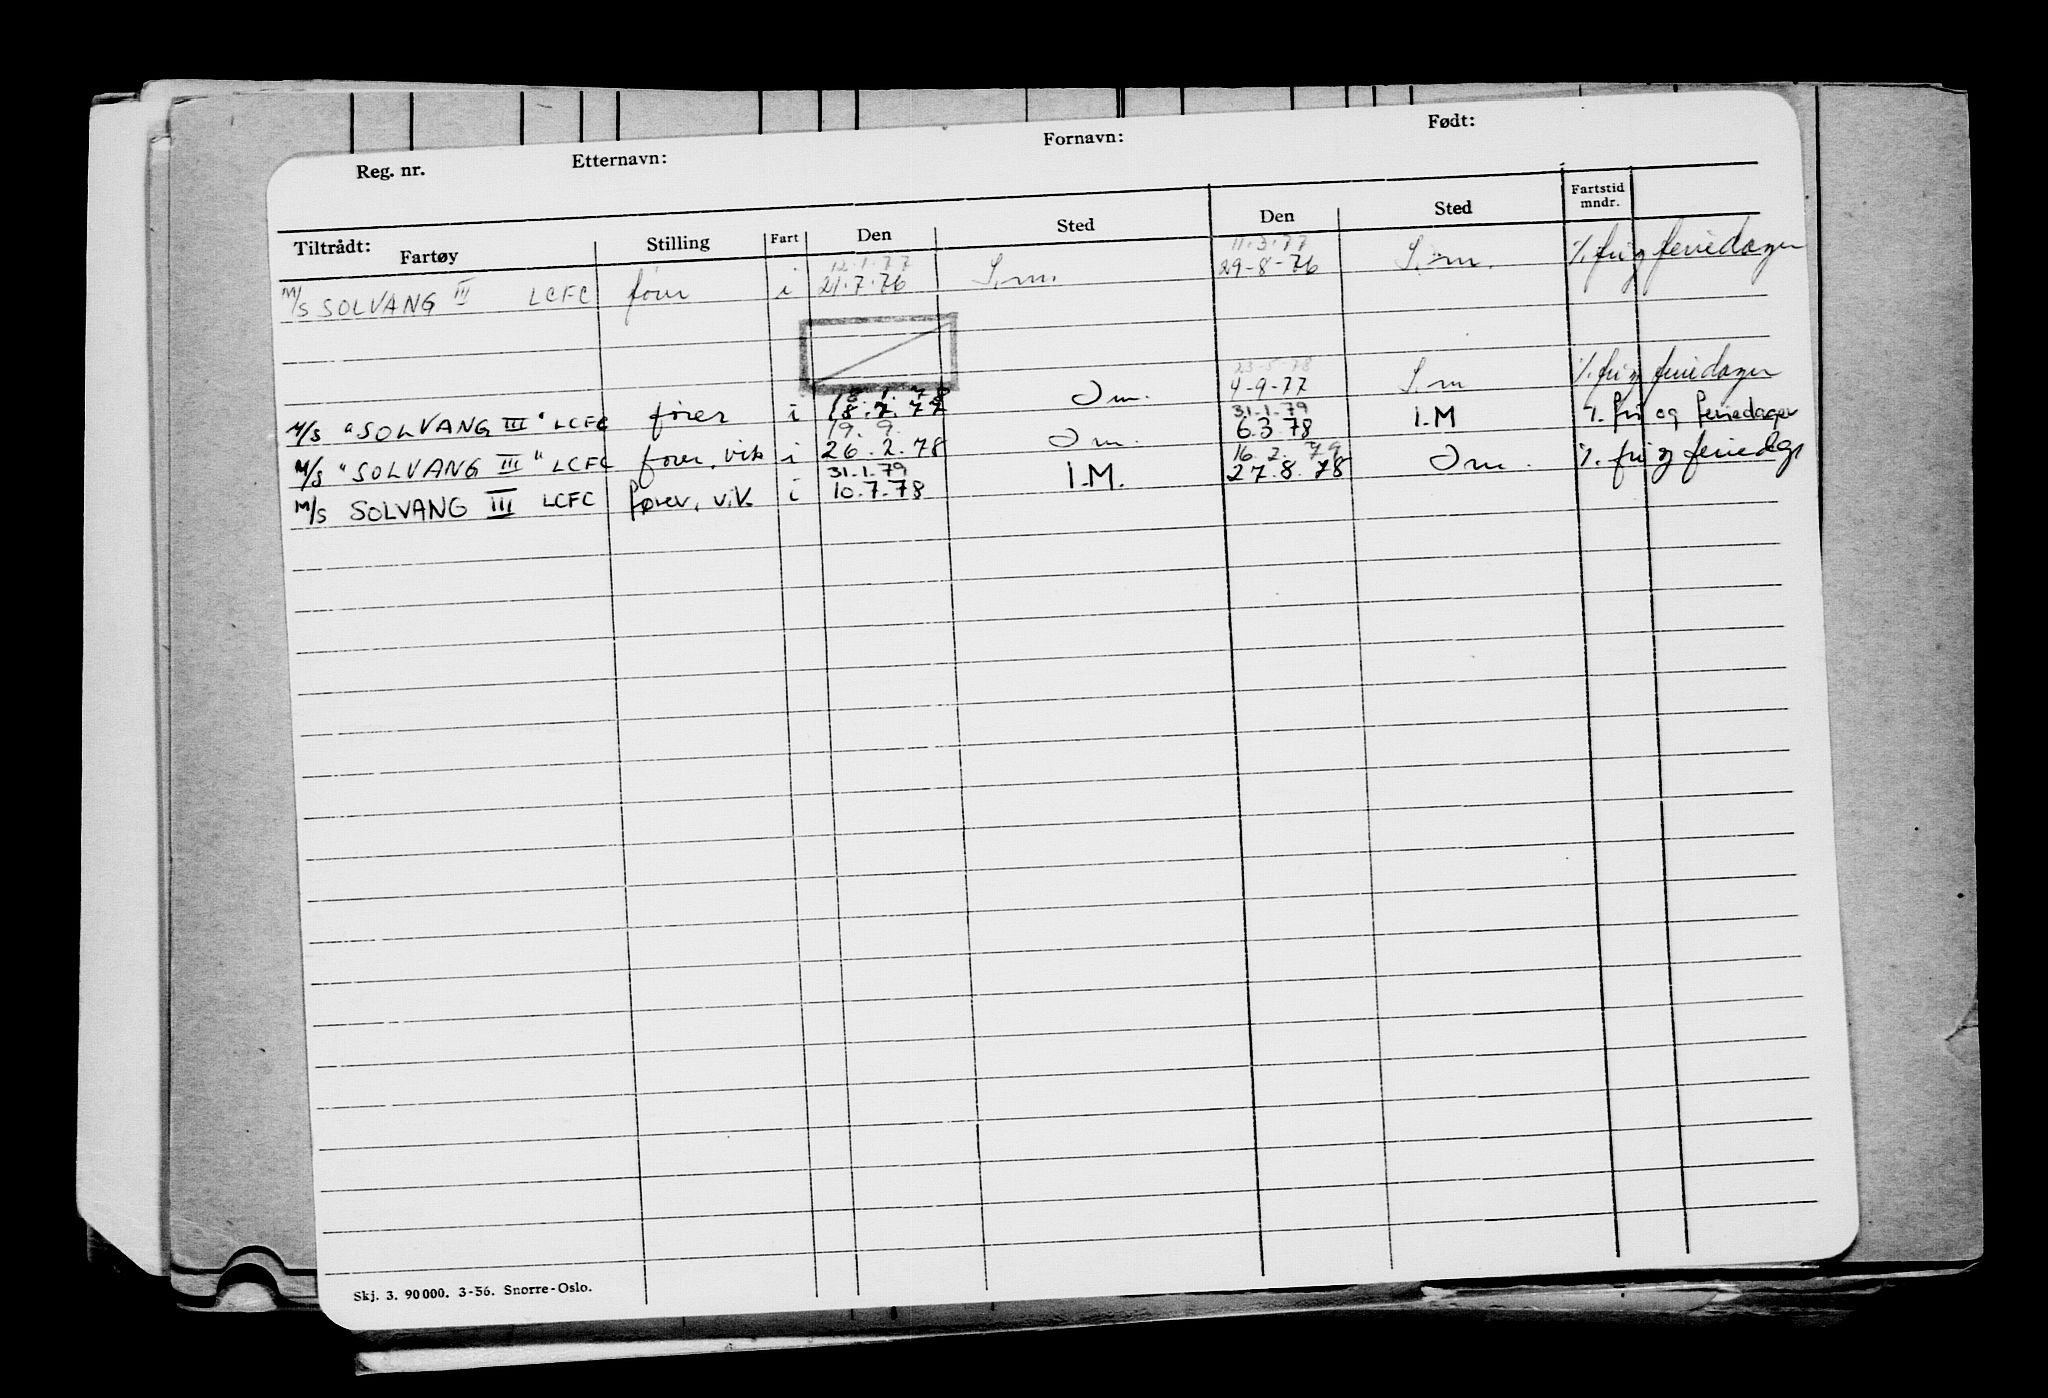 Reg. nr. Etternavn: Fornavn: Født:
Tiltrådt: Fartøy Stilling Fart Den Sted Den Sted Fartstid mndr.
12.1.77 11.3.77
M/S SOLVANG III LCFC fører i 21.7.76 I.m. 29-8-76 I.m. ./. fri og feriedager
18.1.78 23-5-78
M/S "SOLVANG III" LCFC fører i 18.7.77 I m. 4-9-77 I.m ./. fri og feriedager
19.9. 31.1.79
M/S "SOLVANG III" LCFC fører, vik i 26.2.78 I m. 6.3.78 I.M ./. fri og feriedager
31.1.79 16.2.79
M/S SOLVANG III LCFC fører, vik. i 10.7.78 I.M. 27.8.78 I m. ./. fri og feriedgr
Skj. 3. 90000. 3-56. Snorre-Oslo.